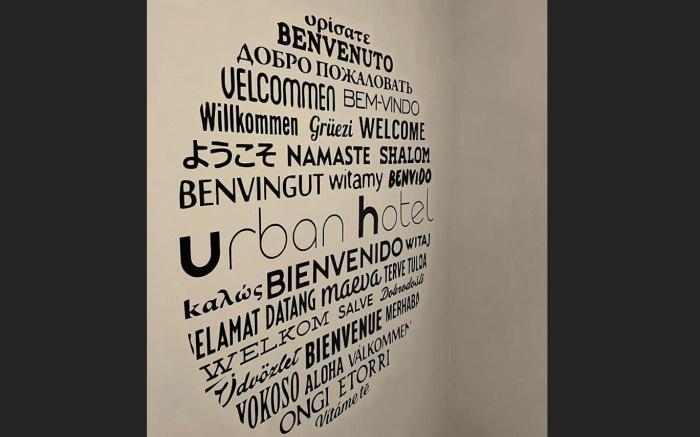 ορίσατε
BENVENUTO
ДОБРО ПОЖАЛОВАТЬ
VELCOMMEN BEM-VINDO
Willkommen Grüezi WELCOME
ようこそ NAMASTE SHALOM
BENVINGUT witamy BENVIDO
urban hotel
καλώς BIENVENIDO WITAJ
SELAMAT DATANG maeva TERVE TULOA
WELKOM SALVE Dobrodošli
Üdvözlet BIENVENUE MERHABA
VOKOSO ALOHA VÄLKOMMEN
ONGI ETORRI
Vítáme tě